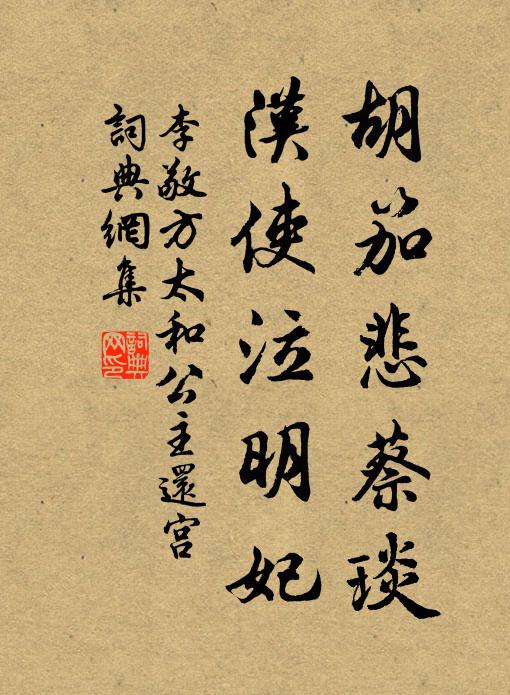 胡笳悲蔡琰
漢使泣明妃
李敬方太和公主還宮
詞典網集
詞典網印